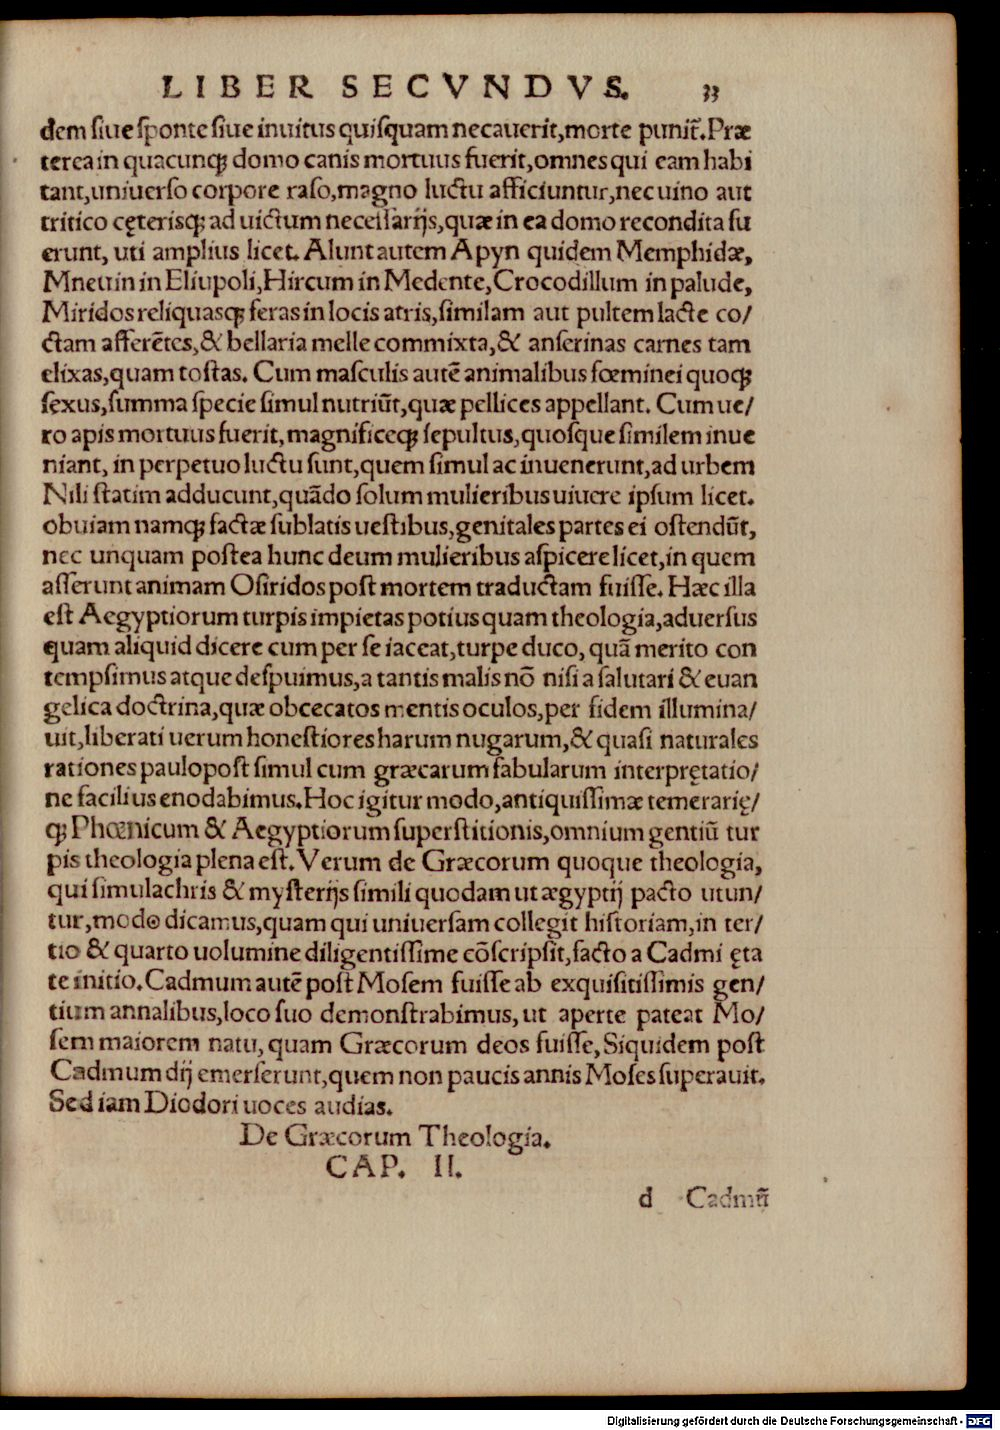 LIBER SECVNDVS. 33
dem ſiue ſponte ſiue inuitus quiſquam necauerit,morte punit̃.Præ
terea in quacunqꝫ domo canis mortuus fuerit,omnes qui eam habi
tant,uniuerſo corpore raſo,magno luctu afficiuntur,nec uino aut
tritico cęterisqꝫ ad uictum neceſſarijs,quæ in ea domo recondita fu
erunt, uti amplius licet. Alunt autem Apyn quidem Memphidæ,
Mneuin in Eliupoli,Hircum in Medente,Crocodillum in palude,
Miridos reliquasqꝫ feras in locis atris,ſimilam aut pultem lacte co/
ctam afferẽtes,& bellaria melle commixta,& anſerinas carnes tam
elixas,quam toſtas. Cum maſculis autẽ animalibus fœminei quoqꝫ
ſexus,ſumma ſpecie ſimul nutriũt,quæ pellices appellant. Cum ue/
ro apis mortuus fuerit,magnificeqꝫ ſepultus,quoſque ſimilem inue
niant, in perpetuo luctu ſunt,quem ſimul ac inuenerunt,ad urbem
Nili ſtatim adducunt,quãdo ſolum mulieribus uiuere ipſum licet.
obuiam namqꝫ factæ ſublatis ueſtibus,genitales partes ei oſtendũt,
nec unquam poſtea hunc deum mulieribus aſpicere licet,in quem
aſſerunt animam Oſiridos poſt mortem traductam fuiſſe. Hæc illa
eſt Aegyptiorum turpis impietas potius quam theologia,aduerſus
quam aliquid dicere cum per ſe iaceat,turpe duco, quã merito con
tempſimus atque deſpuimus,a tantis malis nõ niſi a ſalutari & euan
gelica doctrina,quæ obcecatos mentis oculos,per fidem illumina/
uit,liberati uerum honeſtiores harum nugarum,& quaſi naturales
rationes paulopoſt ſimul cum græcarum fabularum interprętatio/
ne facilius enodabimus.Hoc igitur modo,antiquiſſimæ temerarię/
qꝫ Phœnicum & Aegyptiorum ſuperſtitionis,omnium gentiũ tur
pis theologia plena eſt. Verum de Græcorum quoque theologia,
qui ſimulachris & myſterijs ſimili quodam ut ægyptij pacto utun/
tur,modo dicamus,quam qui uniuerſam collegit hiſtoriam,in ter/
tio & quarto uolumine diligentiſſime cõſcripſit,facto a Cadmi ęta
te initio.Cadmum autẽ poſt Moſem fuiſſe ab exquiſitiſſimis gen/
tium annalibus,loco ſuo demonſtrabimus,ut aperte pateat Mo/
ſem maiorem natu, quam Græcorum deos fuiſſe, Siquidem poſt
Cadmum dij emerſerunt,quem non paucis annis Moſes ſuperauit.
Sed iam Diodori uoces audias.
De Græcorum Theologia.
CAP. II.
d Cadmũ
Digitalisierung gefördert durch die Deutsche Forschungsgemeinschaft - DFG